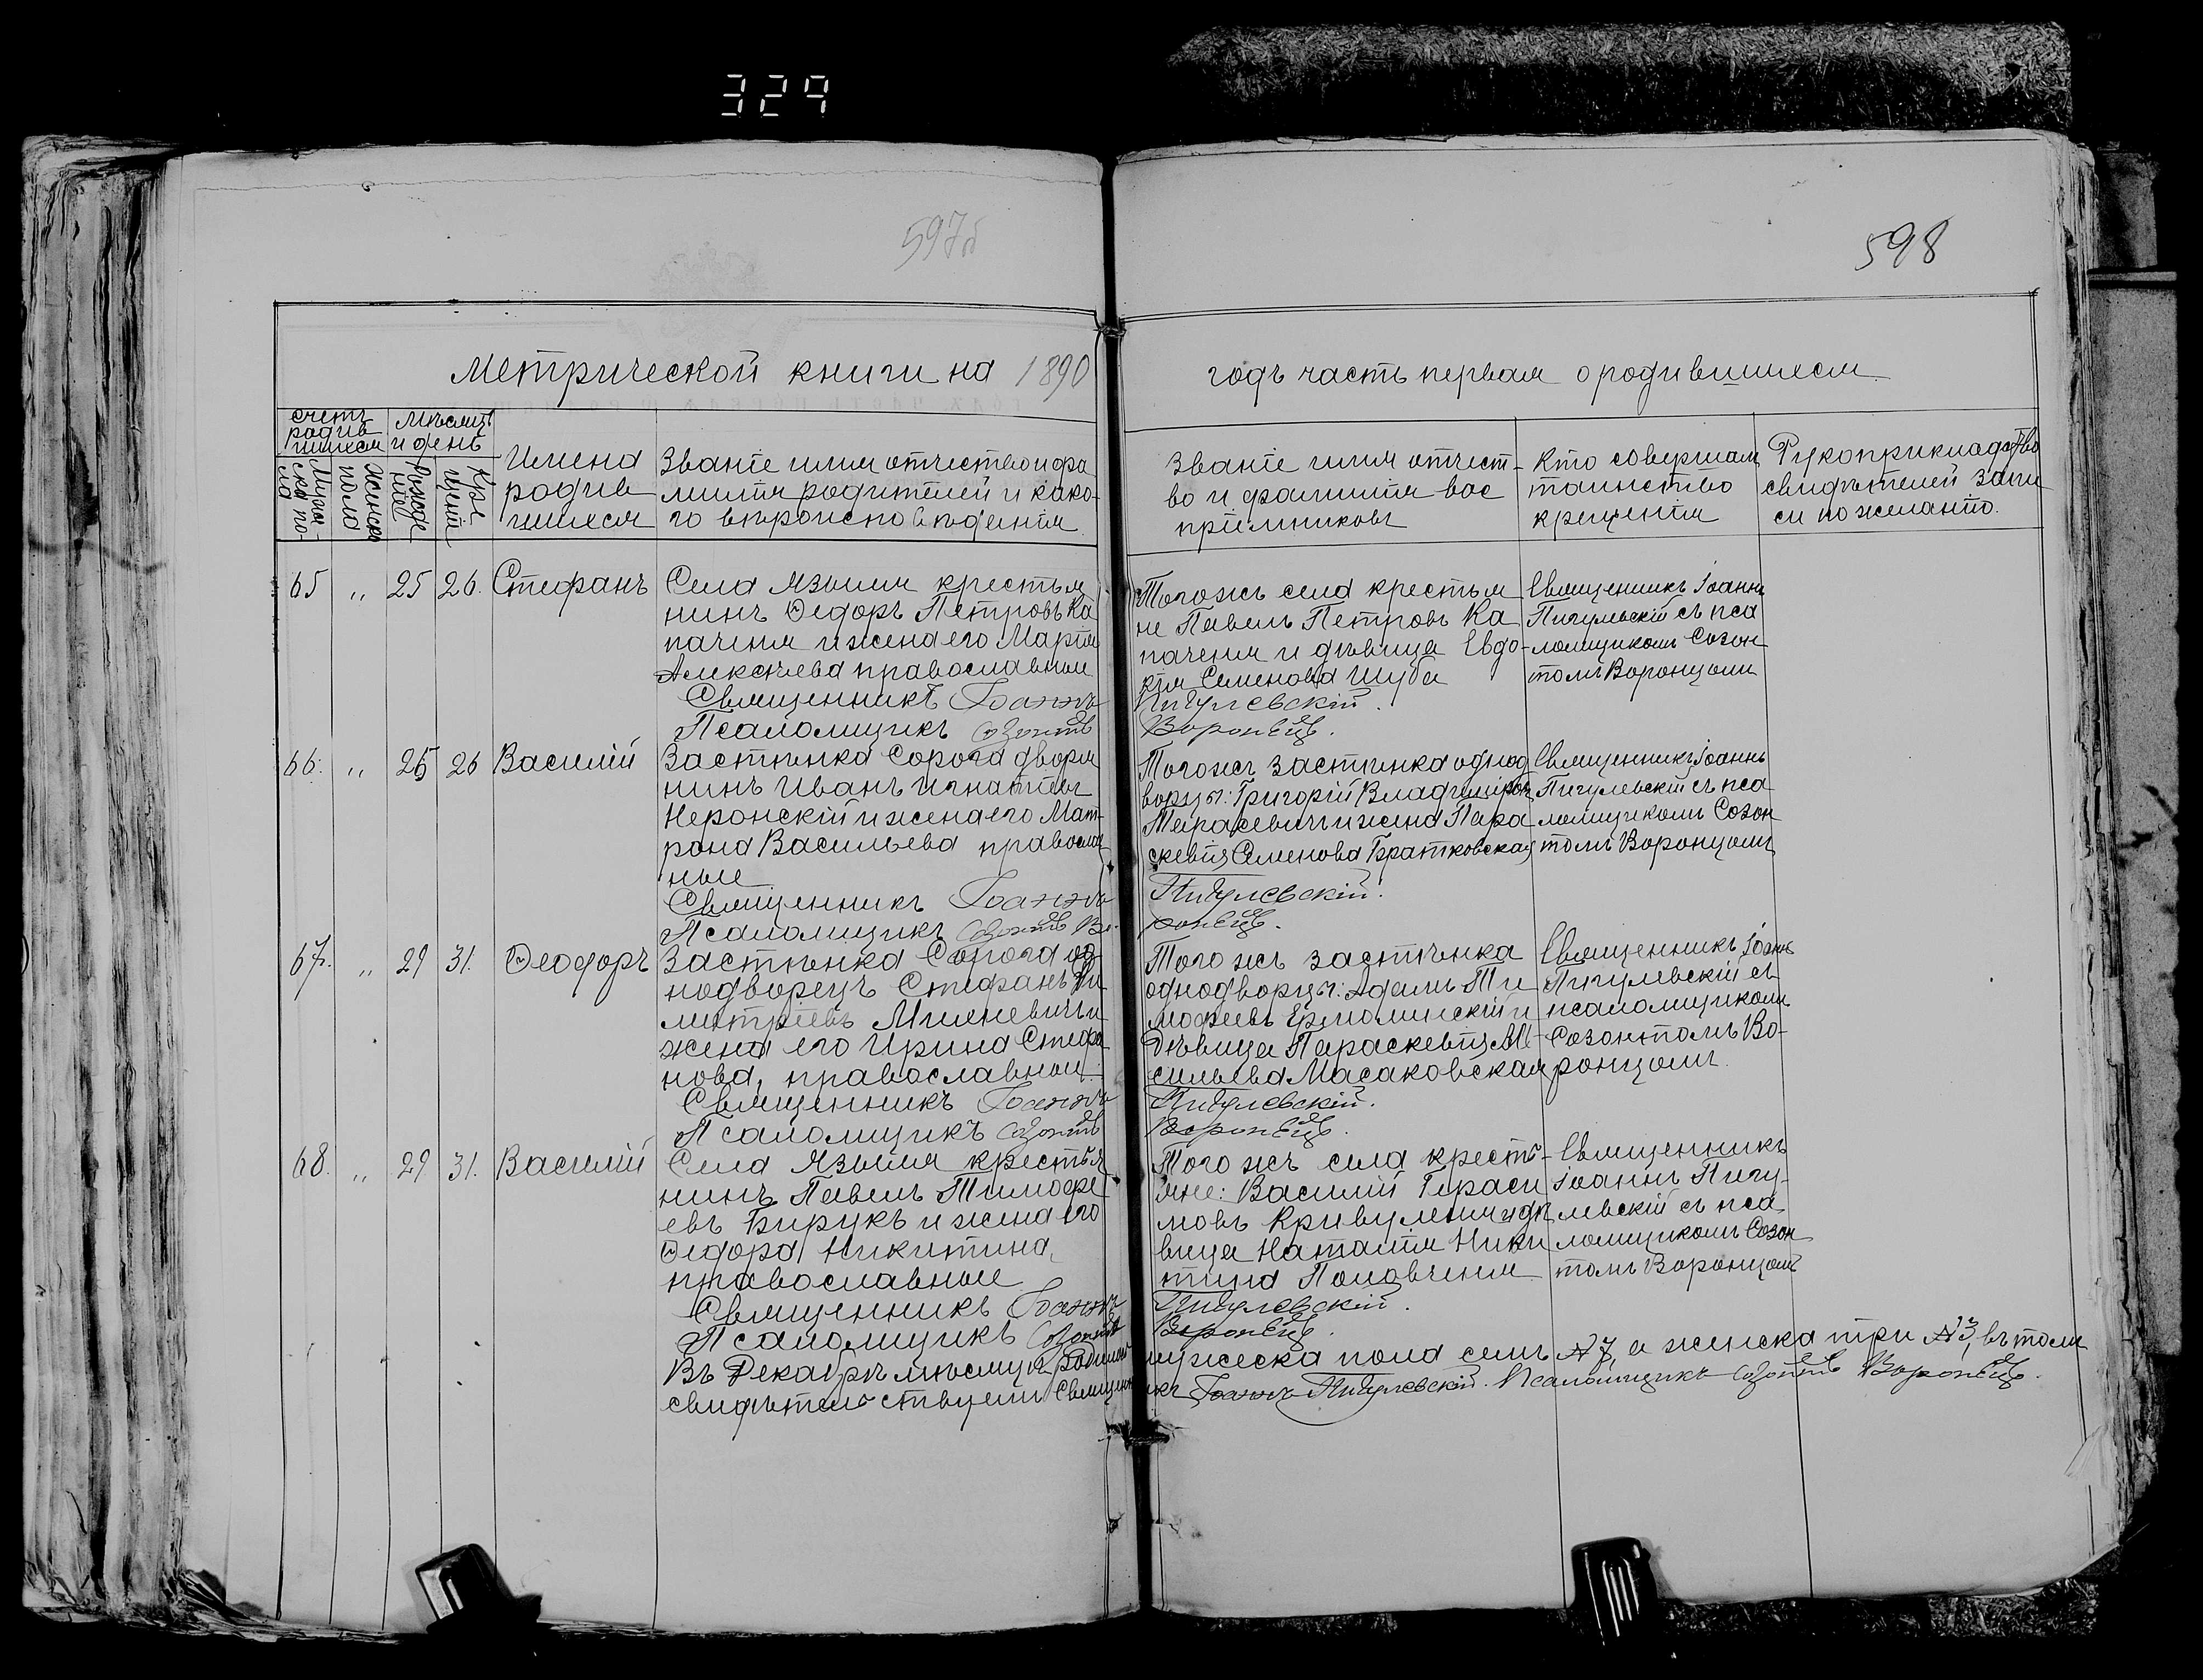 329
597б
598
Метрической книги на 1890
годъ часть первая о родившихся
счетъ родив шихся
Муже ска по ла
женска пола
Мѣсяцъ и день
Рожде ніе
Кре щеніе
Имена
родив
шихся
Званіе имя отчество и фа
милія родителей и како-
го вѣроисповѣданія
Званіе имя отчест-
во и фамилія вос
пріемниковъ
Кто совершалъ
таинство
крещенія
Рукоприкладство
свидѣтелей запи
си по желанію.
65 „ 25 26. Стефанъ
Села Языля крестья
нинъ Ѳедоръ Петровъ Ка
паченя и жена его Марія
Алексѣева православные
Священникъ Іоаннъ
Псаломщикъ Созонтъ
Того жъ села крестья
не Павелъ Петровъ Ка
паченя и дѣвица Евдо-
кія Семенова Шуба
Пигулевскій.
Воронецъ.
Священникъ Іоаннъ
Пигулевскій съ пса
ломщикомъ Созон
томъ Воронцомъ
66. „ 25 26 Василій
Застѣнка Сорога дворя
нинъ Иванъ Игнатіевъ
Неронскій и жена его Мат-
рона Васильева православ
ные
Священникъ Іоаннъ
Псаломщикъ Созонтъ Во-
Того жъ застѣнка однод
ворцы: Григорій Владиміровъ
Тарасевичъ и жена Пара
скевія Семенова Братковская
Пигулевскій.
ронецъ.
Священникъ Іоаннъ
Пигулевскій съ пса
ломщикомъ Созон
томъ Воронцомъ
67. „ 29 31. Ѳеодоръ
Застѣнка Сорога од
нодворецъ Стефанъ Ди
митріевъ Михневичъ и
жена его Ирина Стефа
нова, православные.
Священникъ Іоаннъ
Псаломщикъ Созонтъ
Того жъ застѣнка
однодворцы: Адамъ Ти
мофеевъ Ермолинскій и
Дѣвица Параскевія Ва-
сильева Масаковская
Пигулевскій.
Воронецъ.
Священникъ Іоаннъ
Пигулевскій съ
псаломщикомъ
Созонтомъ Во-
ронцомъ.
68. „ 29 31. Василій
Села Языля крестья
нинъ Павелъ Тимофе
евъ Бирукъ и жена его
Ѳедора Никитина,
православные
Священникъ Іоаннъ
Псаломщикъ Созонтъ
Того жъ села кресть-
яне: Василій Гераси
мовъ Кривуленя и дѣ
вица Наталія Ники
тина Половченя
Пигулевскій.
Воронецъ.
Священникъ
Іоаннъ Пигу-
левскій съ пса
ломщикомъ Созон
томъ Воронцомъ
Въ Декабрѣ мѣсяцѣ родилось мужеска пола семь №7, а женска три №3, въ томъ
свидѣтельствуемъ Священникъ Іоаннъ Пигулевскій. Псаломщикъ Созонтъ Воронецъ.